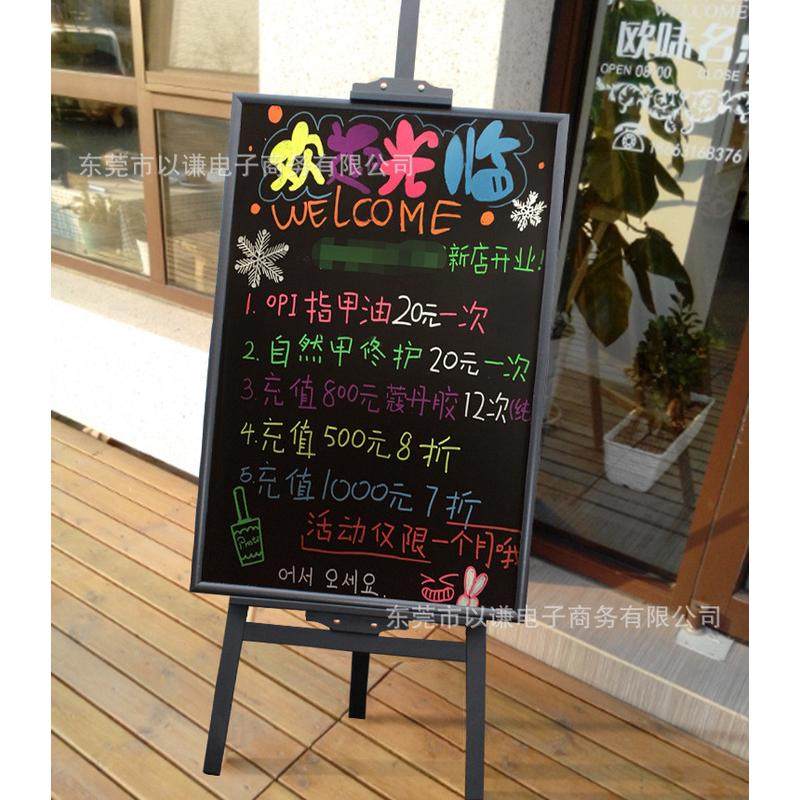 WELCOME
欧味名
OPEN 08:00 CLOSE
15663168376
东莞市以谦电子商务有限公司
欢迎光临
WELCOME
新店开业!
1. OPI指甲油20元一次
2. 自然甲修护20元一次
3. 充值800元蔻丹胶12次(纯
4. 充值500元8折
5. 充值1000元7折
活动仅限一个月哦
어서 오세요.
东莞市以谦电子商务有限公司